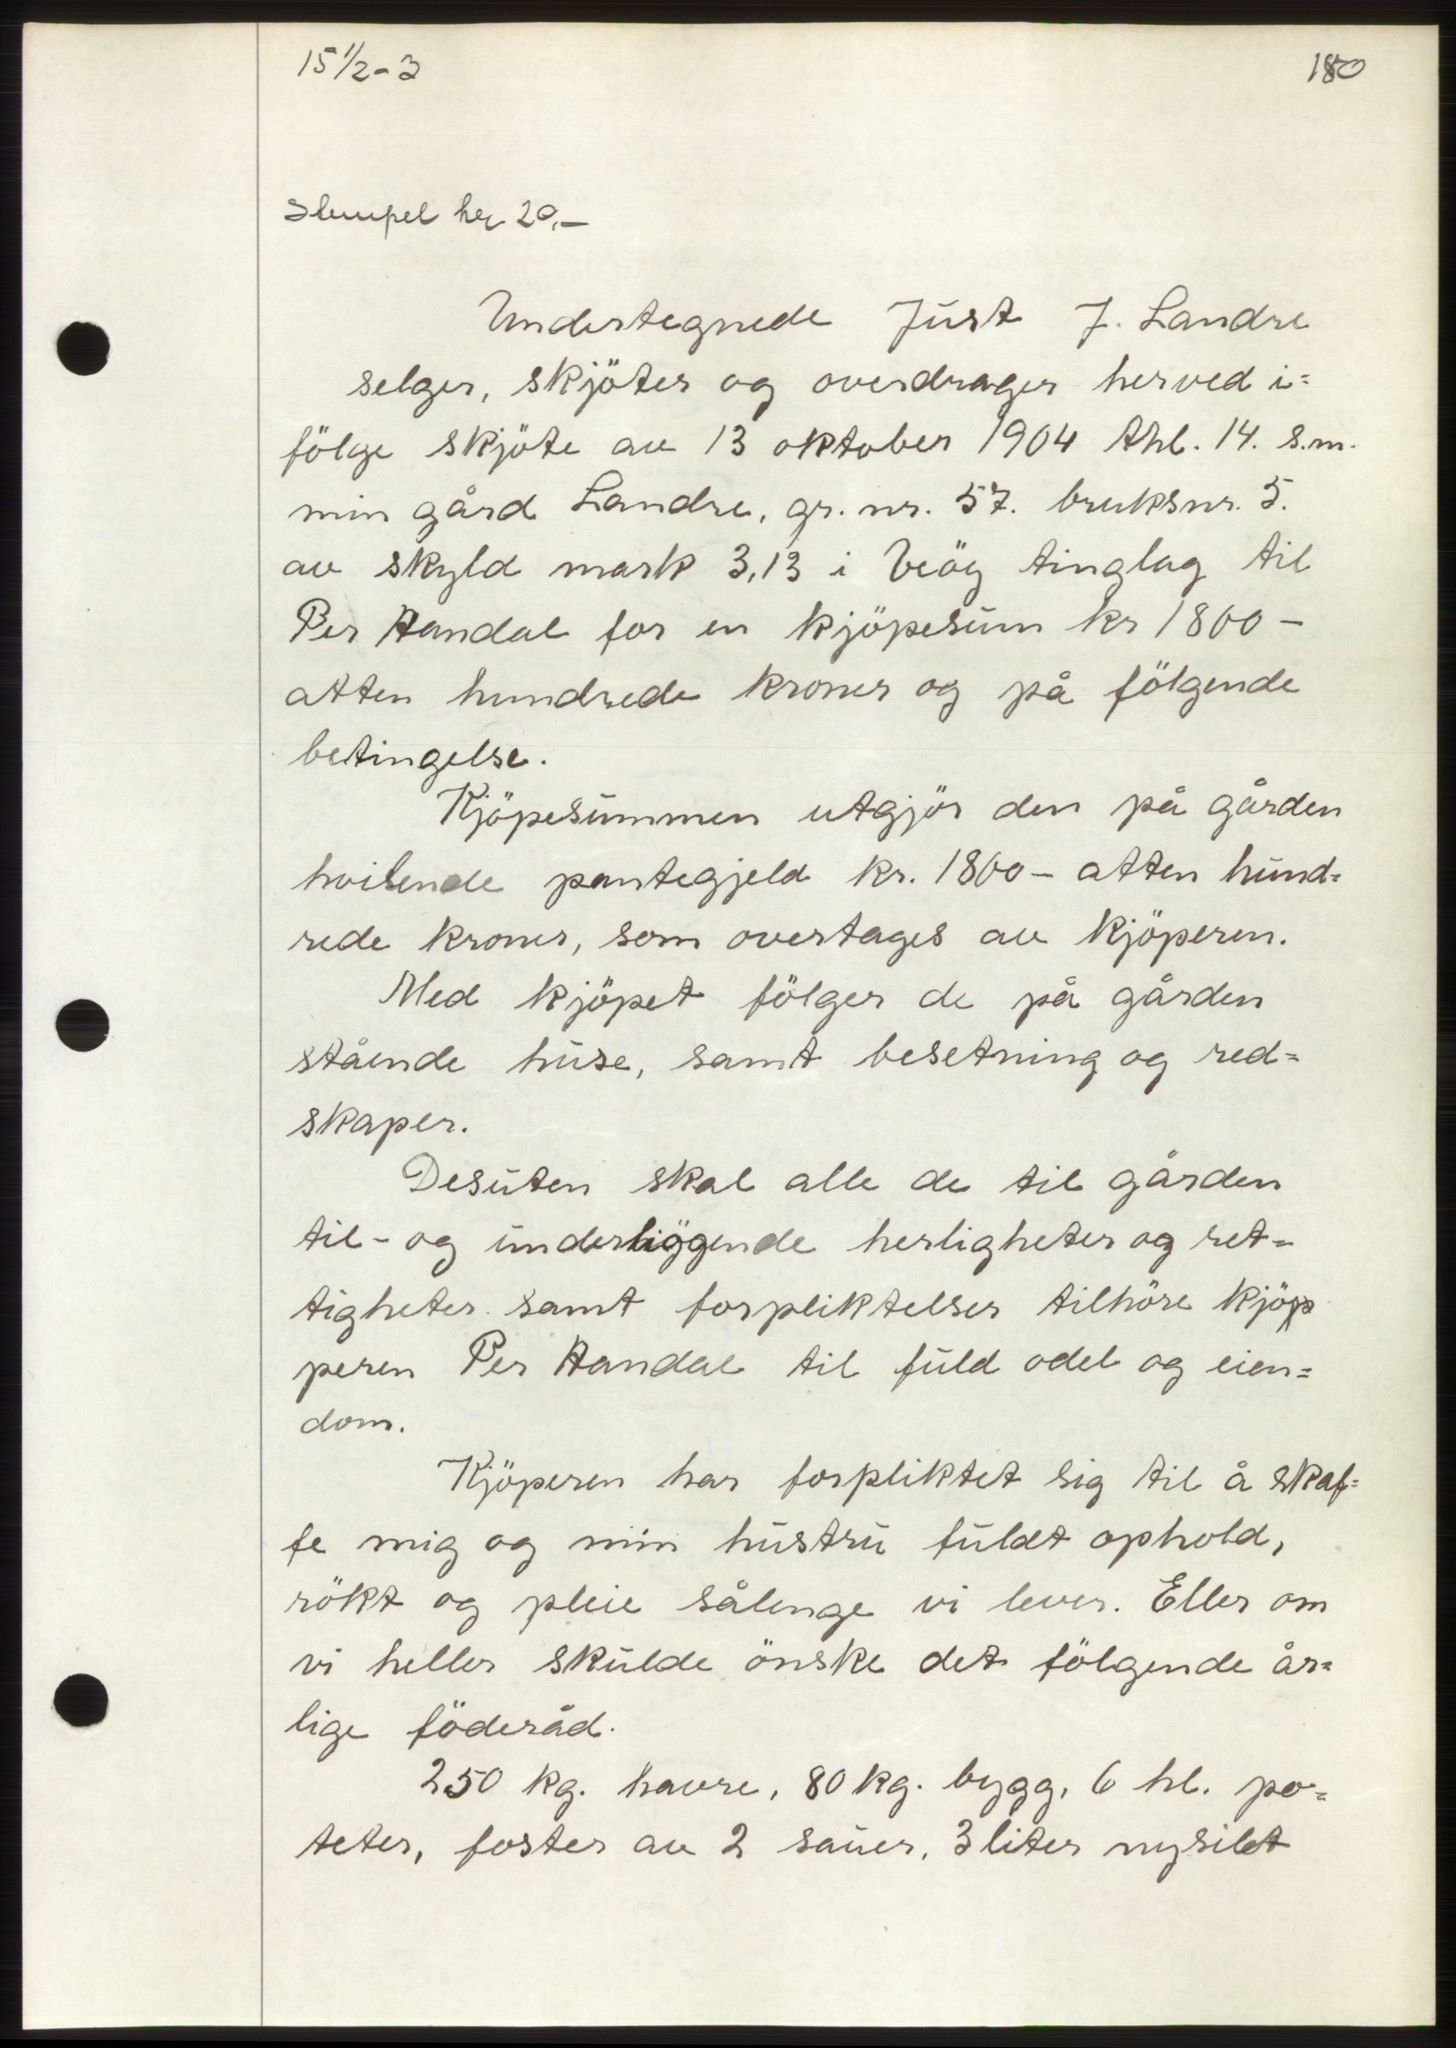 15 1/2 - 3
180
Stempel kr 20.-
Undertegnede Just J. Landre
selger, skjöter og overdrager herved i=
fölge skjöte av 13 oktober 1904 thl. 14. s.m.
min gård Landre, gr. nr. 57. bruksnr. 5.
av skyld mark 3,13 i Veöy tinglag til
Per Handal for en kjöpesum kr 1800 -
atten hundrede kroner og på fölgende
betingelse.
Kjöpesummen utgjör den på gården
hvilende pantegjeld kr. 1800 - atten hund=
rede kroner, som overtages av kjöperen.
Med kjöpet fölger de på gården
stående huse, samt besetning og red=
skaper.
Desuten skal alle de til gården
til- og underliggende herligheter og ret=
tigheter samt forpliktelser tilhöre kjöp
peren Per Handal til fuld odel og eien=
dom.
Kjöperen har forpliktet sig til å skaf=
fe mig og min hustru fuldt ophold,
rökt og pleie sålenge vi lever. Eller om
vi heller skulde önske det fölgende år=
lige föderåd.
250 kg. havre, 80 kg. bygg, 6 hl. po=
teter, foster av 2 sauer, 3 liter nysilet